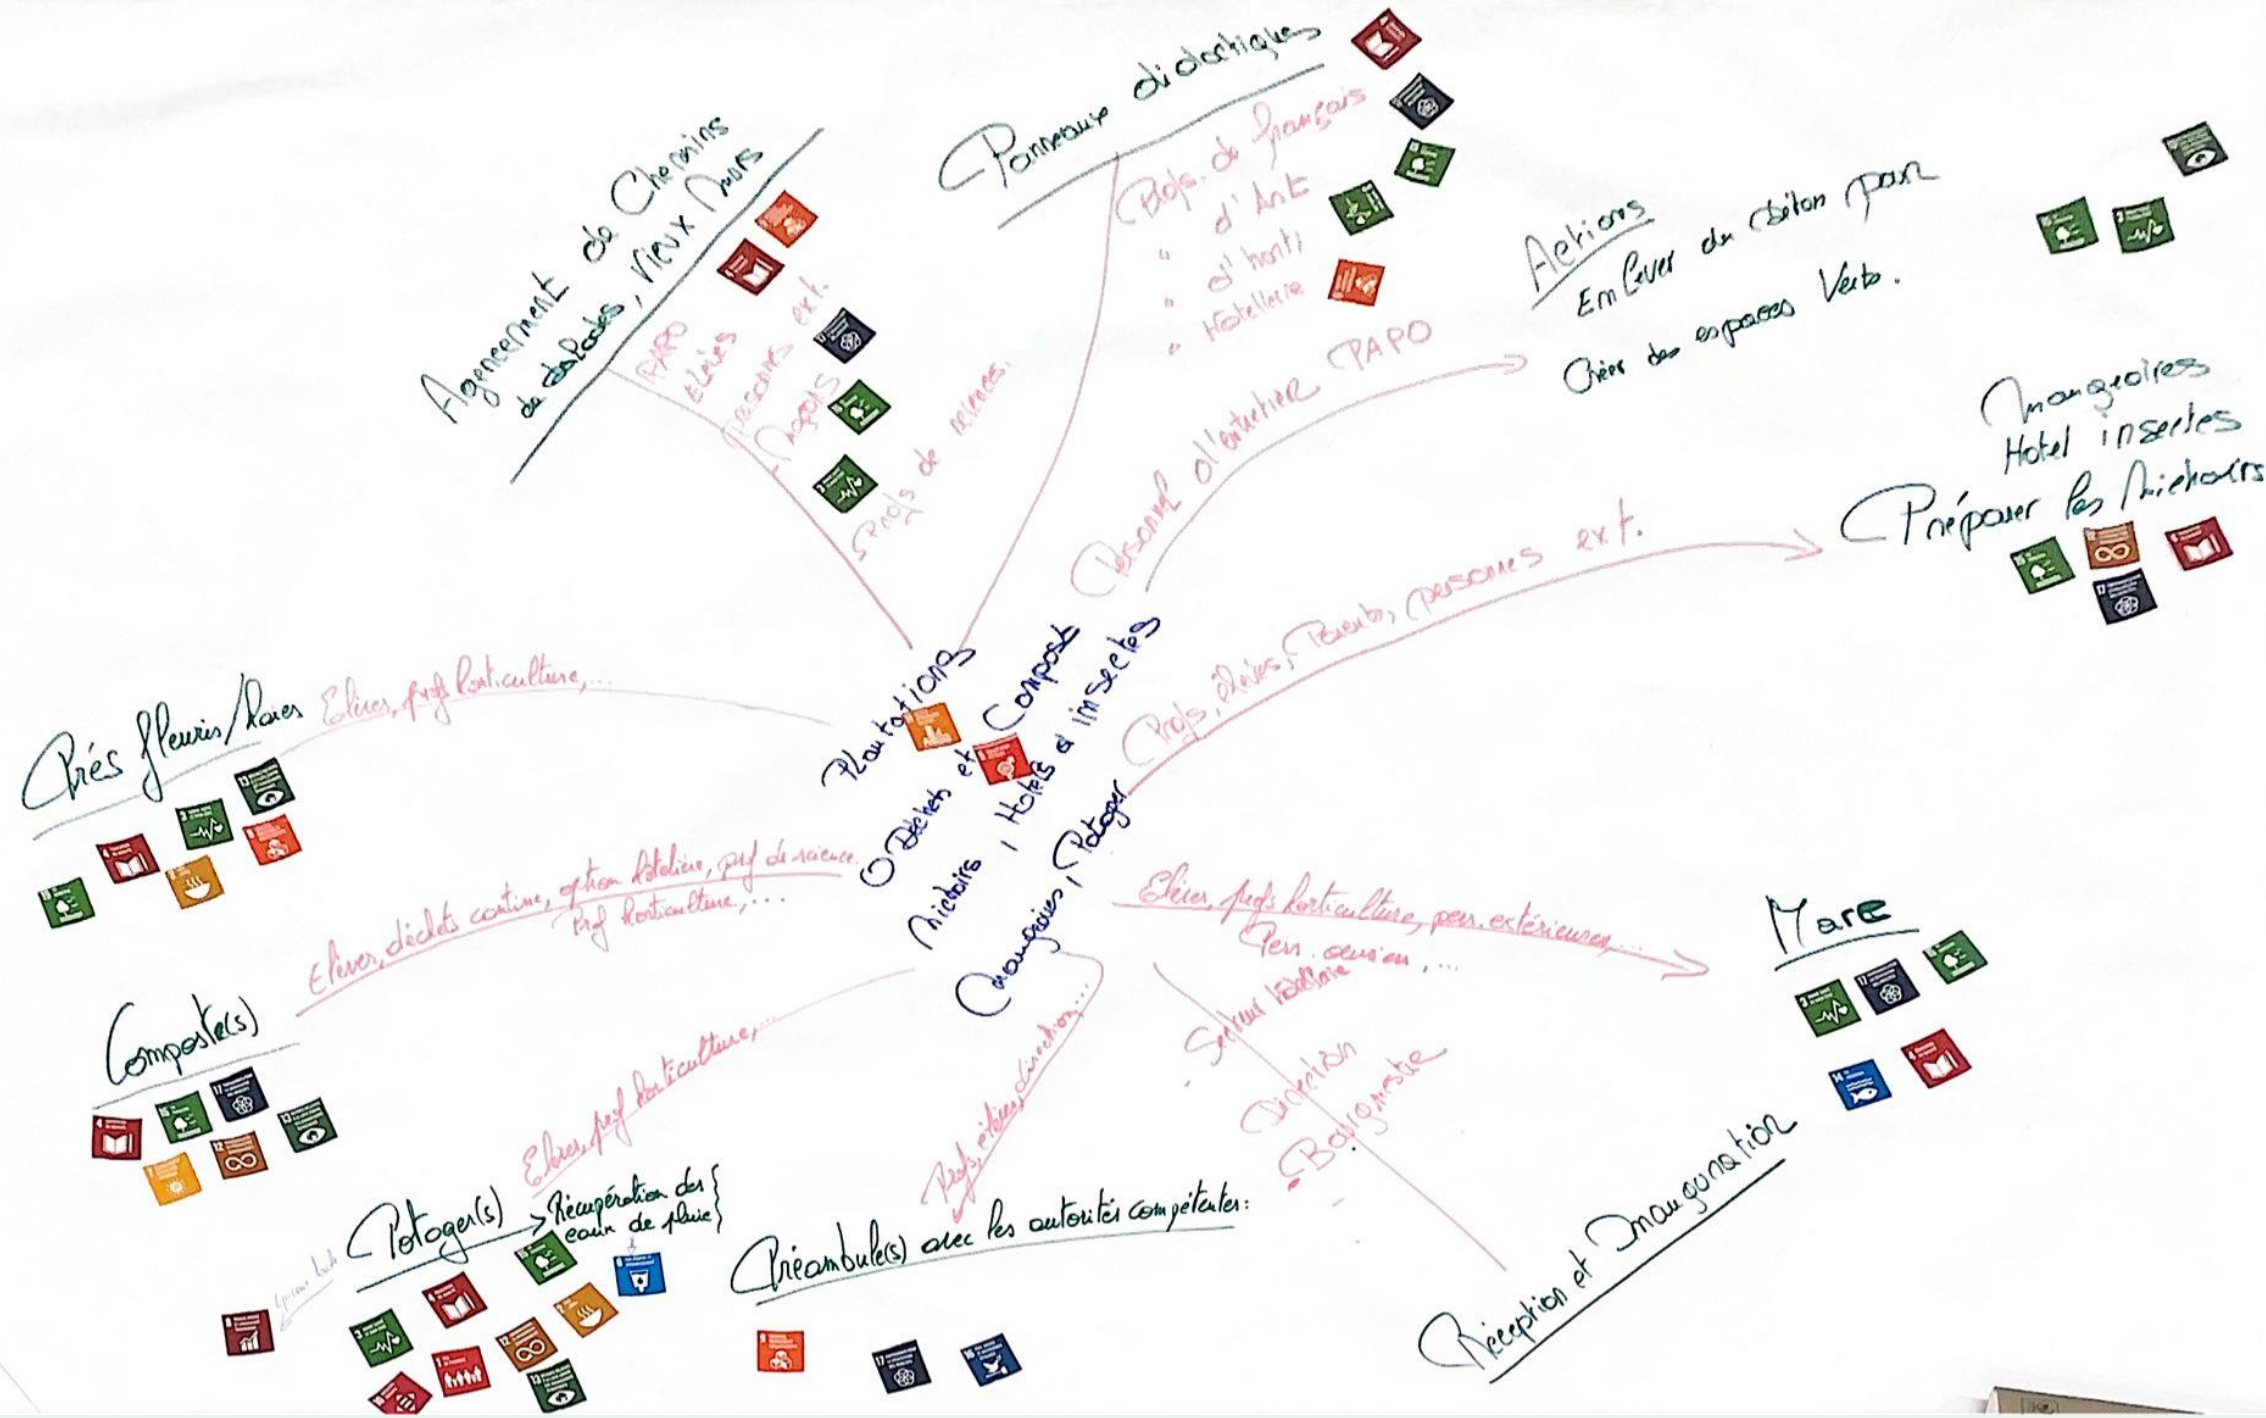 Agencement de Chemins
de dalades, Vieux Murs
PAPO
Elèves
personnes ext.
Maçons
Profs de sciences.
Panneaux didactiques
Profs. de français
" d'Art
" d'horti
" Hotellerie
Personnel d'entretien PAPO
Actions
Enlever du béton pour
Créer des espaces Verts.
Mangeoires
Hotel insectes
Préparer les Nichoirs
Profs, élèves, Parents, personnes ext.
Plantations
Déchets et Compost
Nichoirs, Hotels à insectes
Mangeoires, Potager
Prés fleuris/haies
Elèves, profs horticulture,...
Elèves, déchets cantine, option hôtelière, prof de science.
Prof horticulture,...
Composte(s)
Elèves, prof horticulture,...
Potager(s)
Récupération des
eaux de pluie
Profs, élèves, direction,...
Préambule(s) avec les autorités compétentes:
Elèves, profs horticulture, pers. extérieures,...
Mare
- Secteur hôtellerie
Direction
- Bourgmestre
Réception et Inauguration